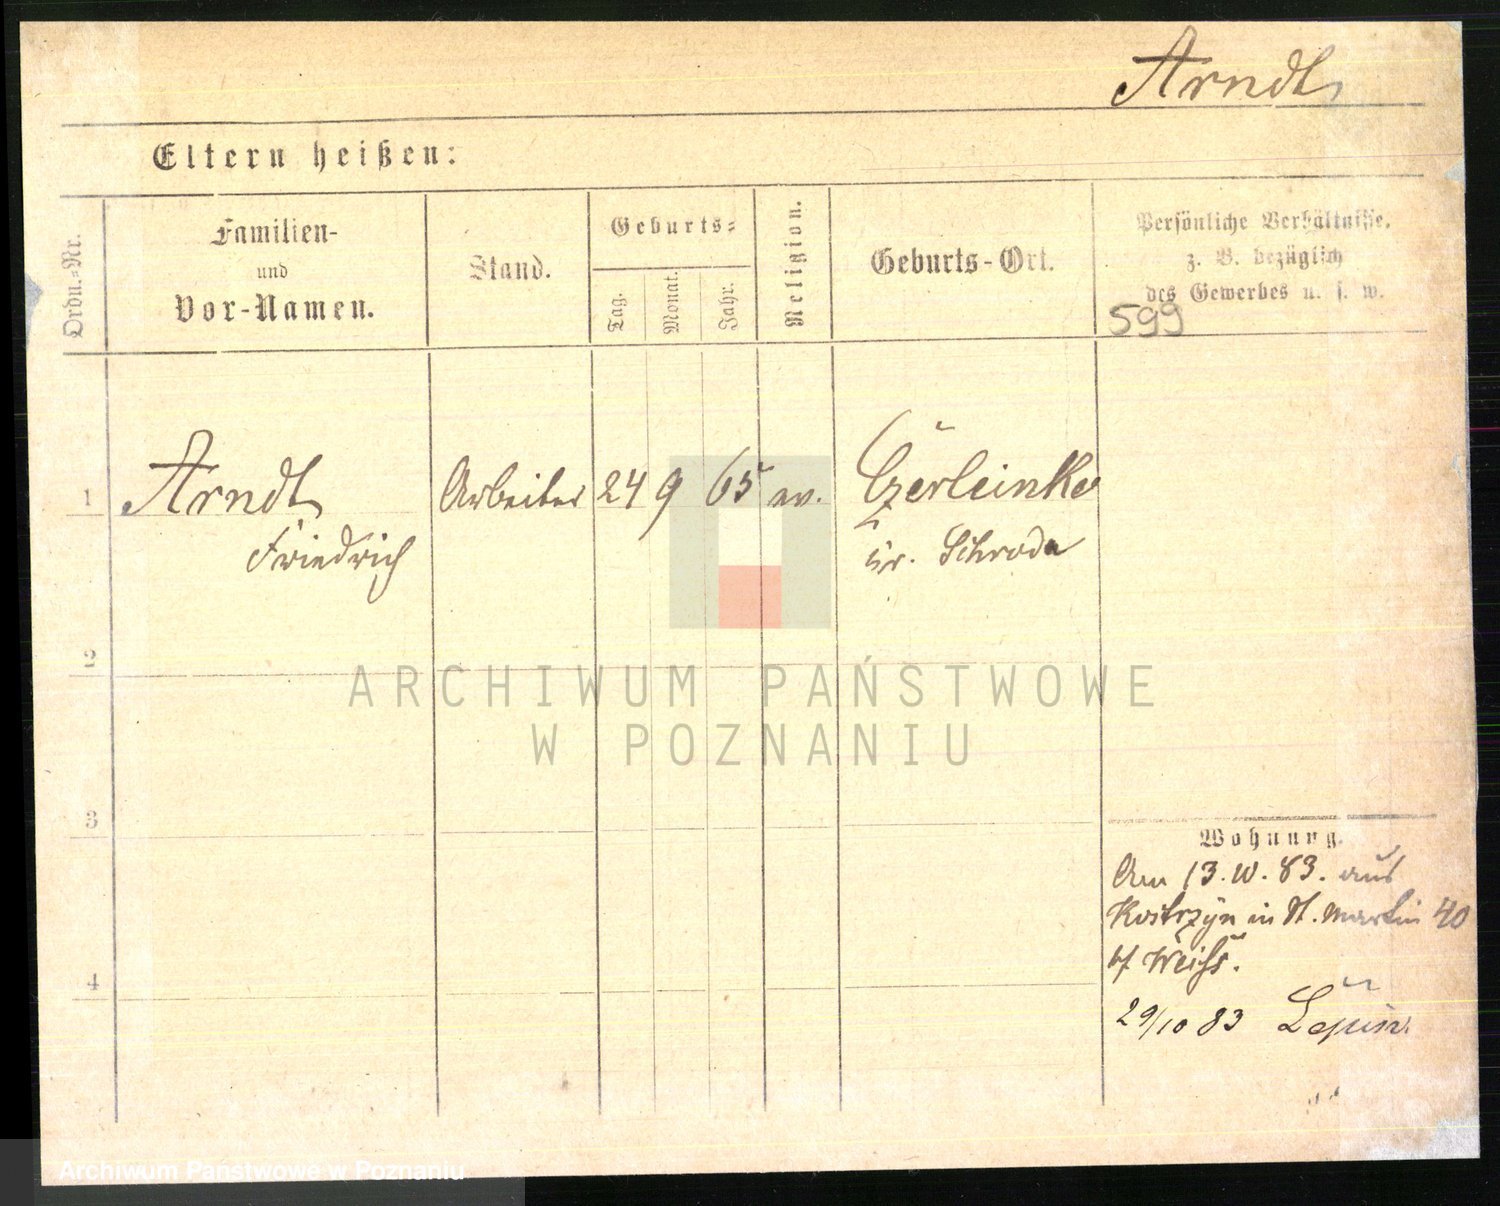 Arndt
Eltern heißen:
Ordn.=Nr.
Familien-
und
Vor-Namen.
Stand.
Geburts=
Tag.
Monat.
Jahr.
Religion.
Geburts-Ort.
Persönliche Verhältnisse,
z. B. bezüglich
des Gewerbes u. s. w.
599
1 Arndt Arbeiter 24 9 65 ev. Czerleinko
Friedrich Kr. Schroda
2
ARCHIWUM PAŃSTWOWE
W POZNANIU
3
Wohnung.
Am 13. 83. aus
Kostrzyn in St. Martin 40
b/ Weiß.
4
29/10 83
Archiwum Państwowe w Poznaniu